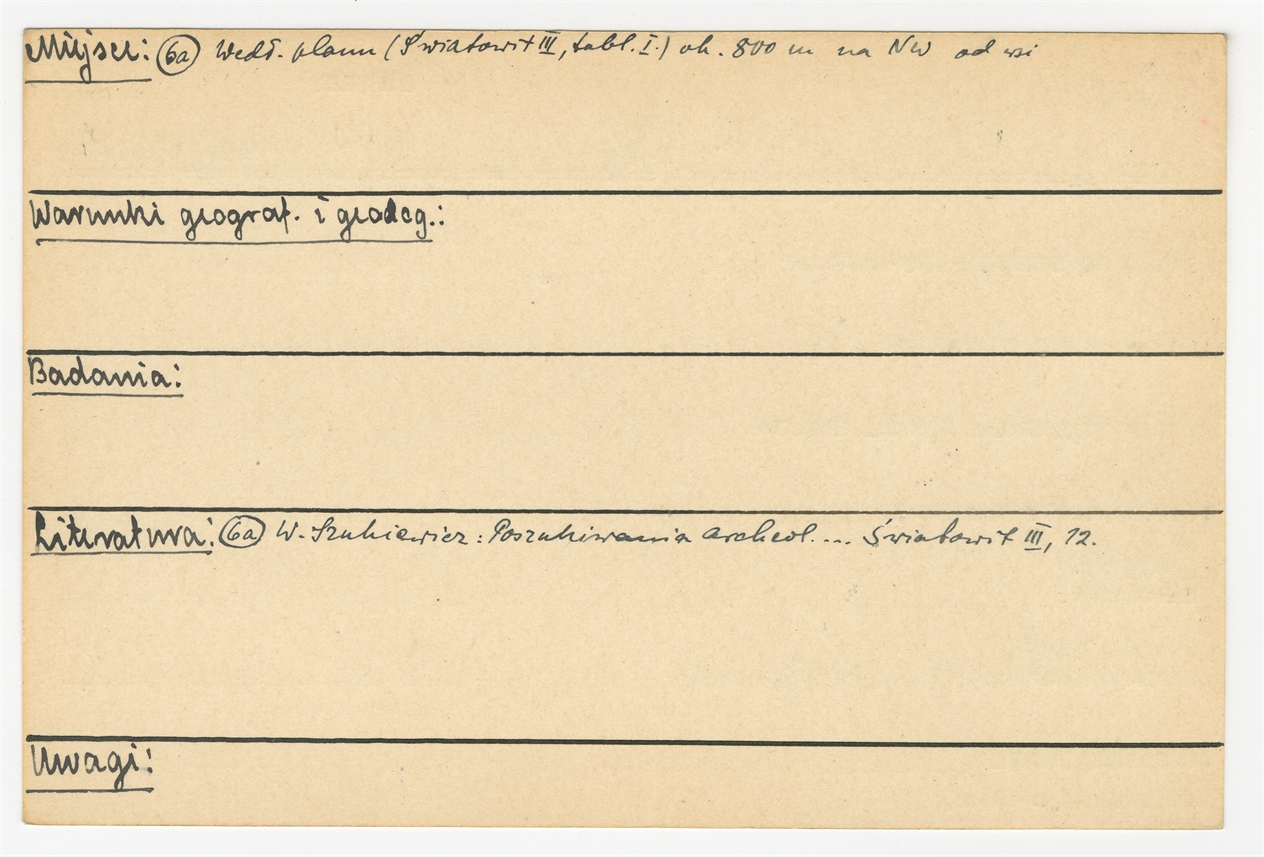 Miejsce: (6a) Wedł. planu (Światowit III, tabl. I.) ok. 800 m na NW od wsi
Warunki geograf. i geolog.:
Badania:
Literatura: (6a) W. Szukiewicz: Poszukiwania archeol. ... Światowit III, 12.
Uwagi: